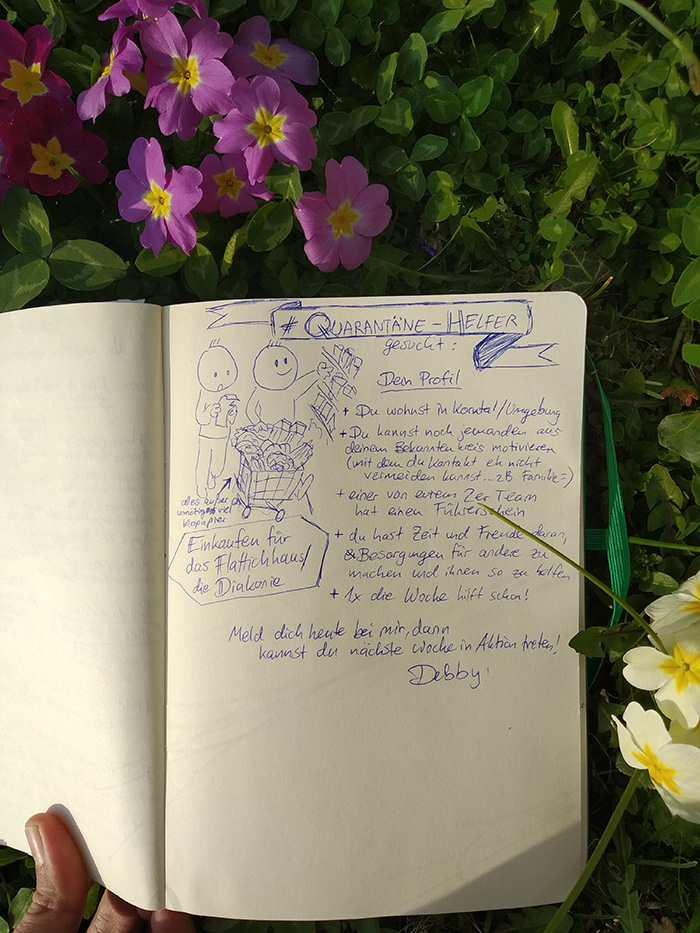 # QUARANTÄNE-HELFER
gesucht:
Dein Profil
+ Du wohnst in Korntal/Umgebung
+ Du kannst noch jemanden aus
deinem Bekanntenkreis motivieren
(mit dem du Kontakt eh nicht
vermeiden kannst... z.B. Familie =)
+ einer von eurem 2er Team
hat einen Führerschein
+ du hast Zeit und Freude daran,
& Besorgungen für andere zu
machen und ihnen so zu helfen
+ 1x die Woche hilft schon!
alles außer
unnötig viel
Klopapier
Einkaufen für
das Flattichhaus/
die Diakonie
Meld dich heute bei mir, dann
kannst du nächste Woche in Aktion treten!
Debby